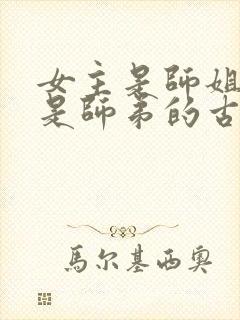 女主是師姐
是師弟的古
馬尔基西奧